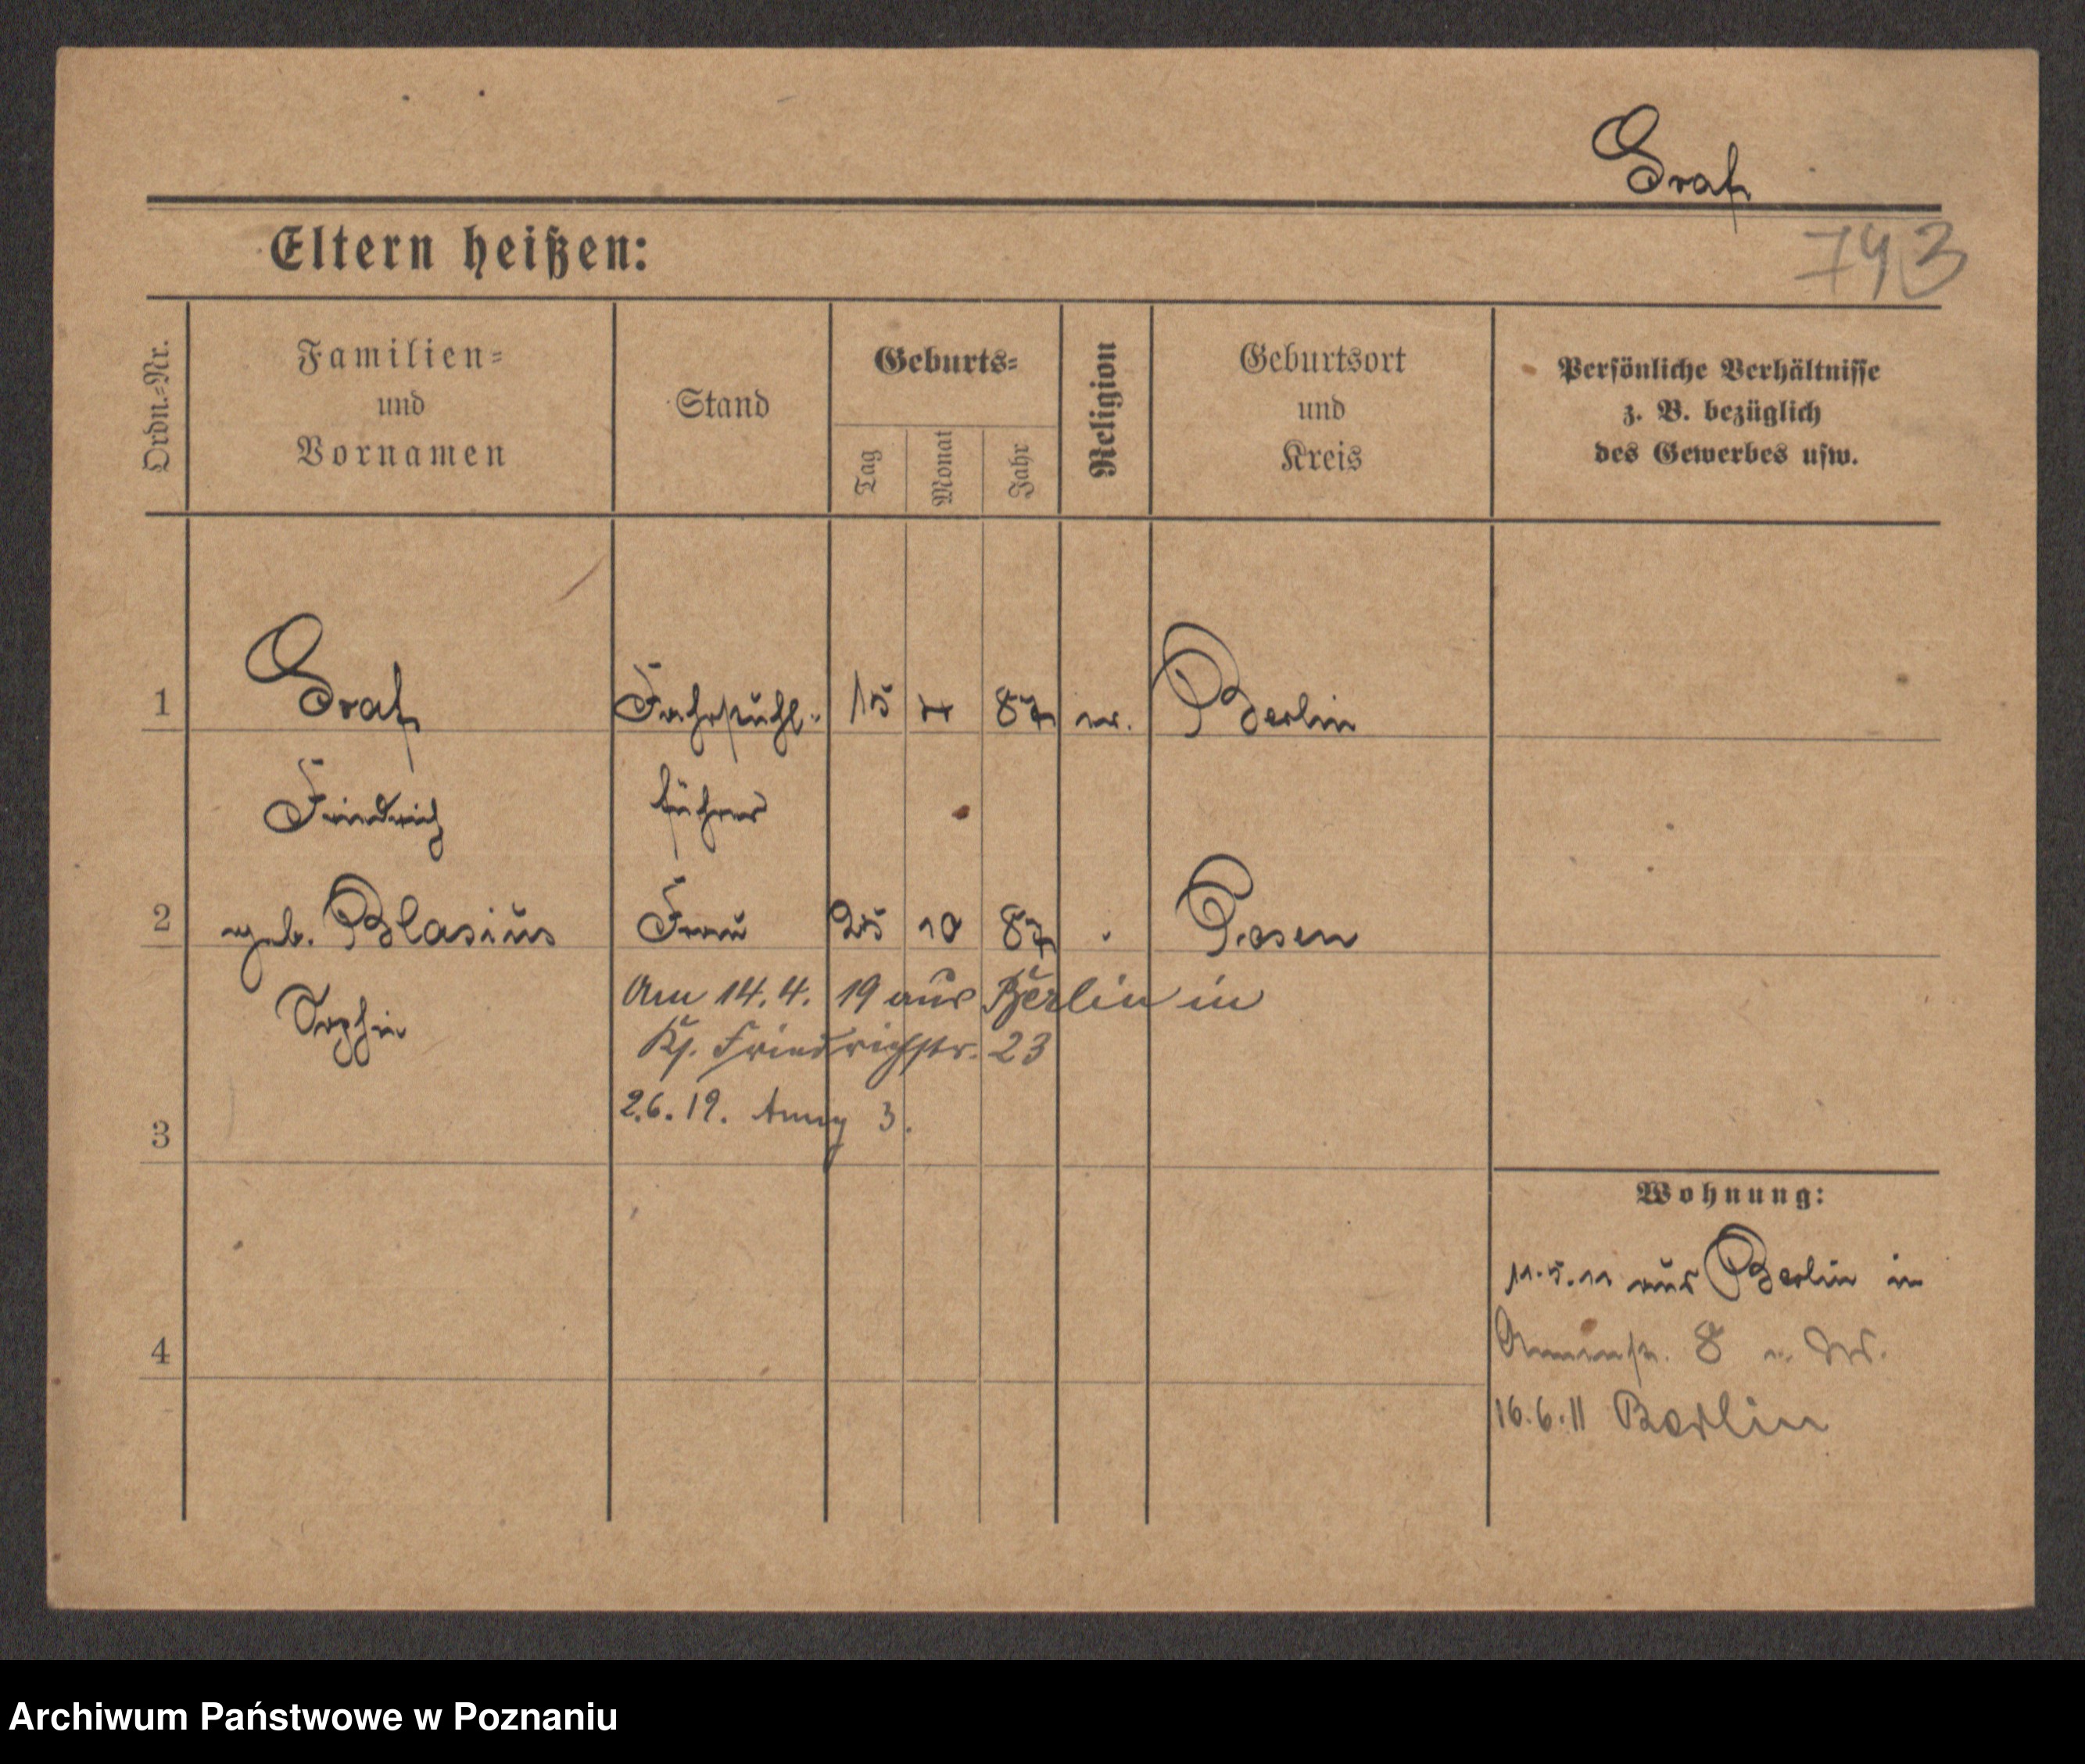 Graf
Eltern heißen:
743
Ordn.=Nr.
Familien=
und
Vornamen
Stand
Geburts=
Tag
Monat
Jahr
Religion
Geburtsort
und
Kreis
Persönliche Verhältnisse
z. B. bezüglich
des Gewerbes usw.
1 Graf Fahrstuhl- 15 87 Berlin
Friedrich führer
2 geb. Blasius Frau 25 10 87 Posen
Sophie
Am 14.4.19 aus Berlin in
Friedrichstr. 23
2.6.19. 3.
3
Wohnung:
11.5.11 aus Berlin in
8
4
16.6.11 Berlin
Archiwum Państwowe w Poznaniu